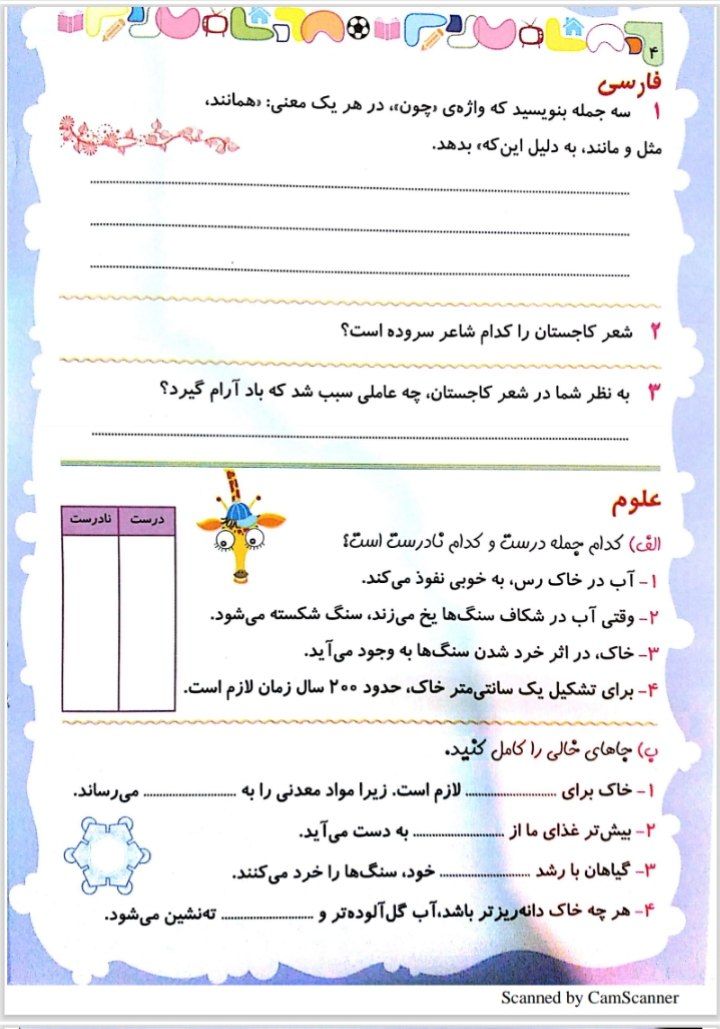 ۴
فارسی
۱ سه جمله بنویسید که واژه‌ی «چون»، در هر یک معنی: «همانند،
مثل و مانند، به دلیل این‌که» بدهد.
۲ شعر کاجستان را کدام شاعر سروده است؟
۳ به نظر شما در شعر کاجستان، چه عاملی سبب شد که باد آرام گیرد؟
علوم
درست نادرست
الف) کدام جمله درست و کدام نادرست است؟
۱- آب در خاک رس، به خوبی نفوذ می‌کند.
۲- وقتی آب در شکاف سنگ‌ها یخ می‌زند، سنگ شکسته می‌شود.
۳- خاک، در اثر خرد شدن سنگ‌ها به وجود می‌آید.
۴- برای تشکیل یک سانتی‌متر خاک، حدود ۲۰۰ سال زمان لازم است.
ب) جاهای خالی را کامل کنید.
۱- خاک برای .................... لازم است. زیرا مواد معدنی را به .................... می‌رساند.
۲- بیش‌تر غذای ما از .................... به دست می‌آید.
۳- گیاهان با رشد .................... خود، سنگ‌ها را خرد می‌کنند.
۴- هر چه خاک دانه‌ریزتر باشد،آب گل‌آلوده‌تر و .................... ته‌نشین می‌شود.
Scanned by CamScanner